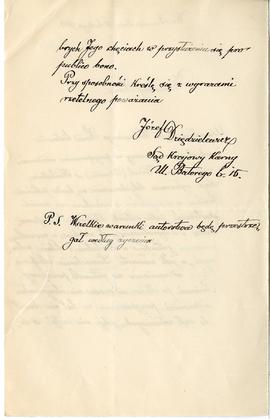 brych Jego chęciach w przysłużeniu się pro
publico bono.
Przy sposobności kreślę się z wyrazami
rzetelnego poważania
Józef Dzędzielewicz
Sąd Krajowy Karny
Ul. Batorego L. 16.
P. S. Wszelkie warunki autorstwa będę przestrze-
gał według życzenia